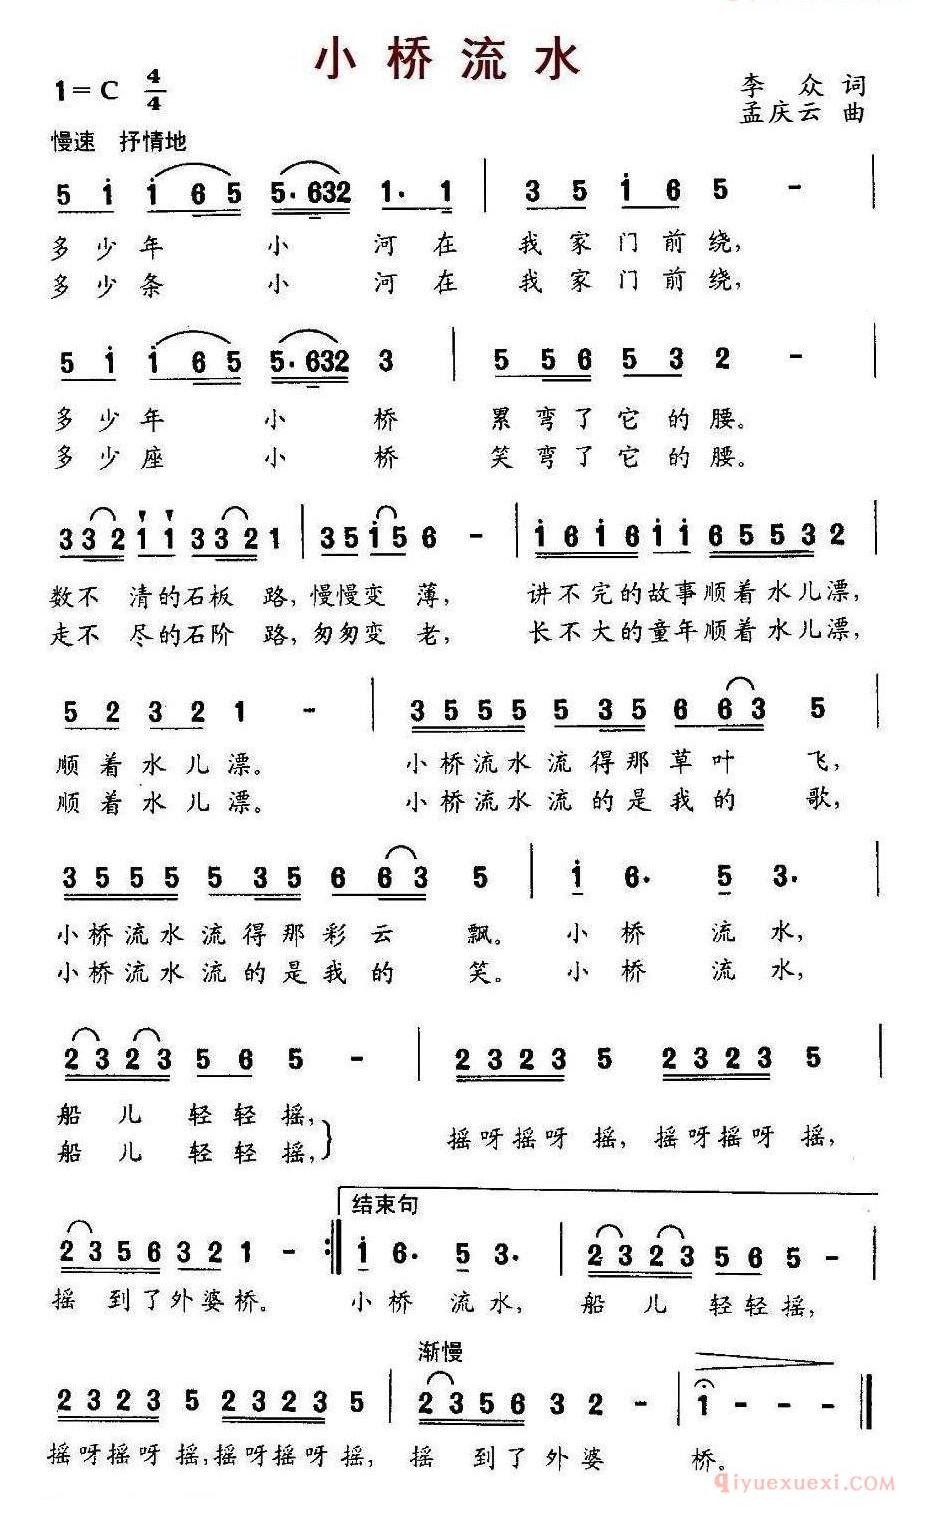 小桥流水
1=C 4/4
李众 词
孟庆云 曲
慢速 抒情地
5 i i 6 5 5·632 1· 1 | 3 5 i 6 5 - |
多少年 小 河在 我家门前绕，
多少条 小 河在 我家门前绕，
5 i i 6 5 5·632 3 | 5 5 6 5 3 2 - |
多少年 小 桥 累弯了它的腰。
多少座 小 桥 笑弯了它的腰。
3 3 2 1 1 3 3 2 1 | 3 5 i 5 6 - | i 6 i 6 i i 6 5 5 3 2 |
数不 清的石板 路，慢慢变 薄， 讲不完的故事顺着水儿漂，
走不 尽的石阶 路，匆匆变 老， 长不大的童年顺着水儿漂，
5 2 3 2 1 - | 3 5 5 5 5 3 5 6 6 3 5 |
顺着水儿漂。 小桥流水流得那草叶 飞，
顺着水儿漂。 小桥流水流的是我的 歌，
3 5 5 5 5 3 5 6 6 3 5 | i 6· 5 3· |
小桥流水流得那彩云 飘。小桥 流水，
小桥流水流的是我的 笑。小桥 流水，
2 3 2 3 5 6 5 - | 2 3 2 3 5 2 3 2 3 5 |
船 儿 轻轻摇，
船 儿 轻轻摇，}
摇呀摇呀 摇，摇呀摇呀 摇，
结束句
2 3 5 6 3 2 1 - :| i 6· 5 3· | 2 3 2 3 5 6 5 - |
摇 到了外婆桥。 小桥 流水， 船 儿 轻轻摇，
渐慢
2 3 2 3 5 2 3 2 3 5 | 2 3 5 6 3 2 - | 1 - - - ||
摇呀摇呀 摇，摇呀摇呀摇， 摇 到了外婆 桥。
qiyuexuexi.COM